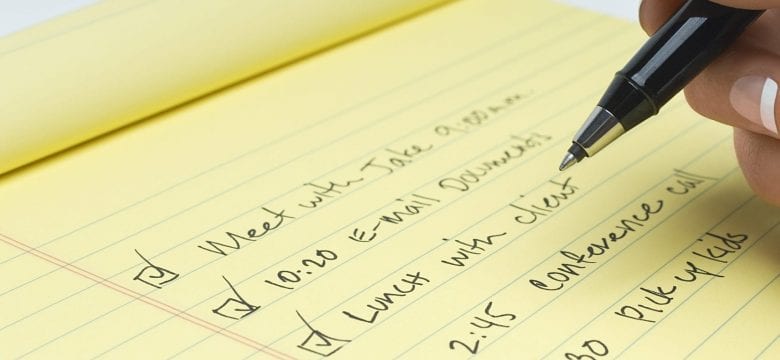 Meet with Jake 9:00am
10:20 E-mail Documents
Lunch with client
2:45 Conference call
30 Pick up kids